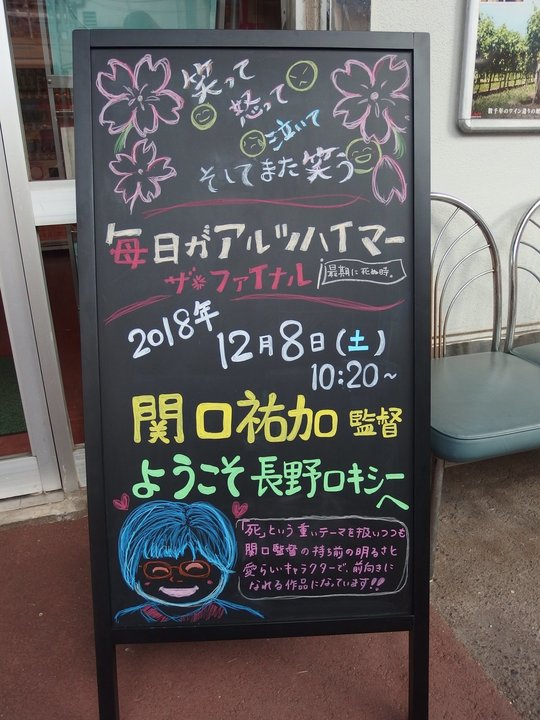 笑って
怒って
泣いて
そしてまた笑う
毎日がアルツハイマー
ザ・ファイナル
最期に死ぬ時。
2018年
12月8日(土)
10:20～
関口祐加監督
ようこそ長野ロキシーへ
「死」という重いテーマを扱いつつも
関口監督の持ち前の明るさと
愛らしいキャラクターで、前向きに
なれる作品になっています!!
数千年のワイン造りの歴